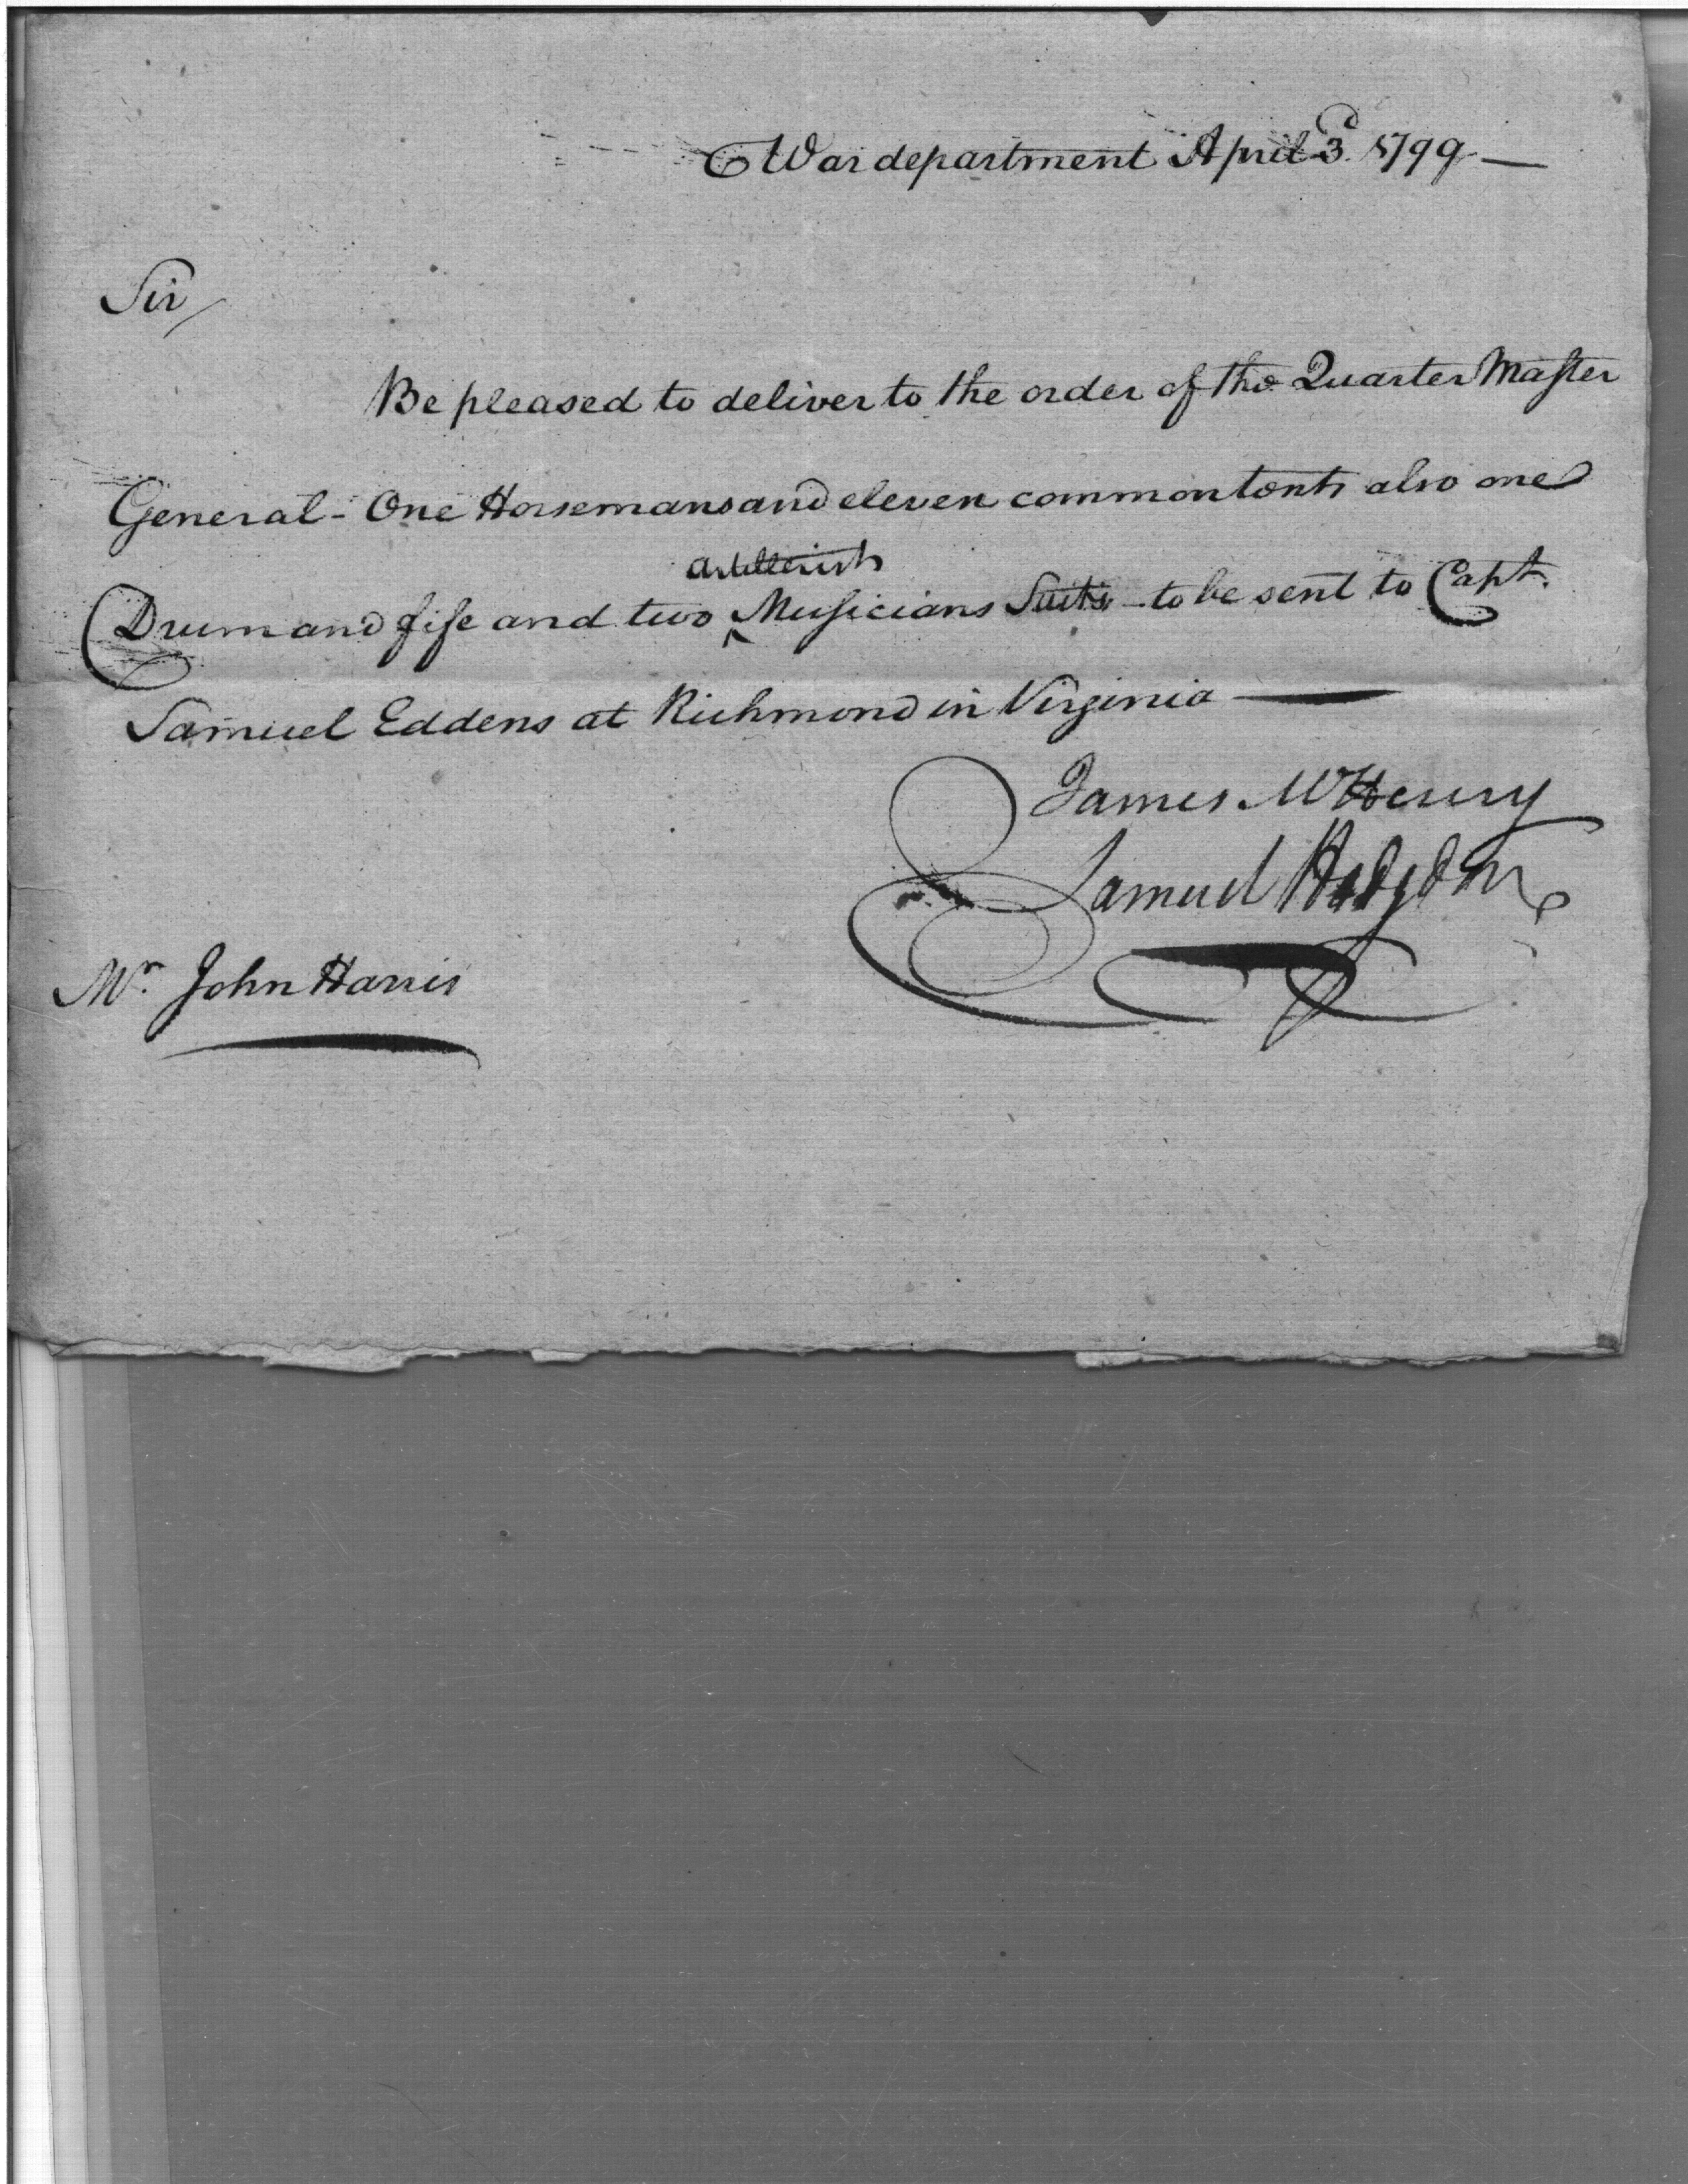 War department April 3d. 1799 —
Sir/
Be pleased to deliver to the order of the Quarter Master
General - One Horsemans and eleven common tents also one
artillerists
Drum and fife and two ^ Musicians Suits - to be sent to Capt.
Samuel Eddens at Richmond in Virginia —
James McHenry
Samuel Hodgdon
Mr. John Harris